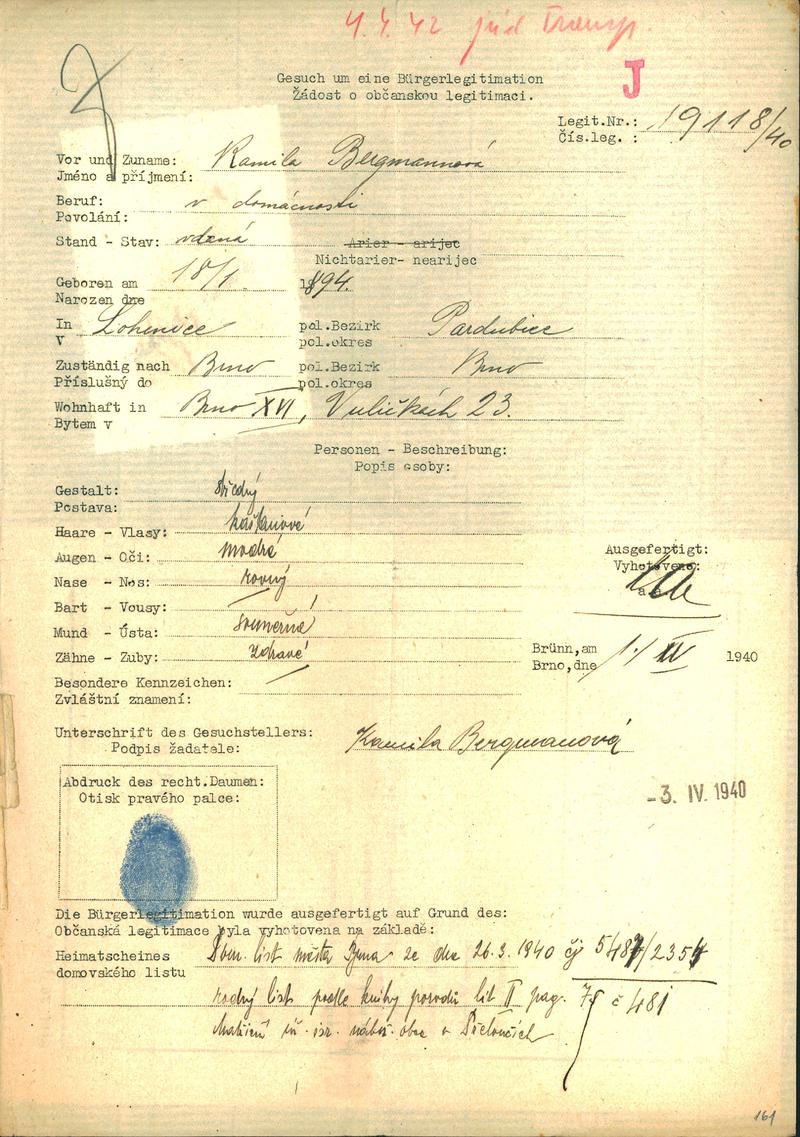 4.4.42 žid. Transp.
J
Gesuch um eine Bürgerlegitimation
Žádost o občanskou legitimaci.
Legit.Nr.: 19118/40
Čís.leg. :
Vor und Zuname: Kamila Bergmannová
Jméno a příjmení:
Beruf: v domácnosti
Povolání:
Stand - Stav: vdaná Arier - arijec
Nichtarier- nearijec
Geboren am 18/1. 1894.
Narozen dne
In Lohenice pol.Bezirk Pardubice
V pol.okres
Zuständig nach Brno pol.Bezirk Brno
Příslušný do pol.okres
Wohnhaft in Brno XVI, Vuličkách 23.
Bytem v
Personen - Beschreibung:
Popis osoby:
Gestalt: středný
Postava:
Haare - Vlasy: kaštanové
Augen - Oči: modré
Nase - Nos: rovný
Bart - Vousy:
Mund - Ústa: souměrná
Zähne - Zuby: zdravé
Besondere Kennzeichen:
Zvláštní znamení:
Ausgefertigt:
Vyhotoveno:
Brünn,am 1./IV 1940
Brno,dne
Unterschrift des Gesuchstellers: Kamila Bergmanová
Podpis žadatele:
-3. IV. 1940
Abdruck des recht.Daumen:
Otisk pravého palce:
Die Bürgerlegitimation wurde ausgefertigt auf Grund des:
Občanská legitimace byla vyhotovena na základě:
Heimatscheines Dom. list města Brna ze dne 26.3.1940 čj 5487/2354
domovského listu
rodný list podle knihy porodů lit II pag. 78 č 481
isr. nábož. obce v Přeloučích
161